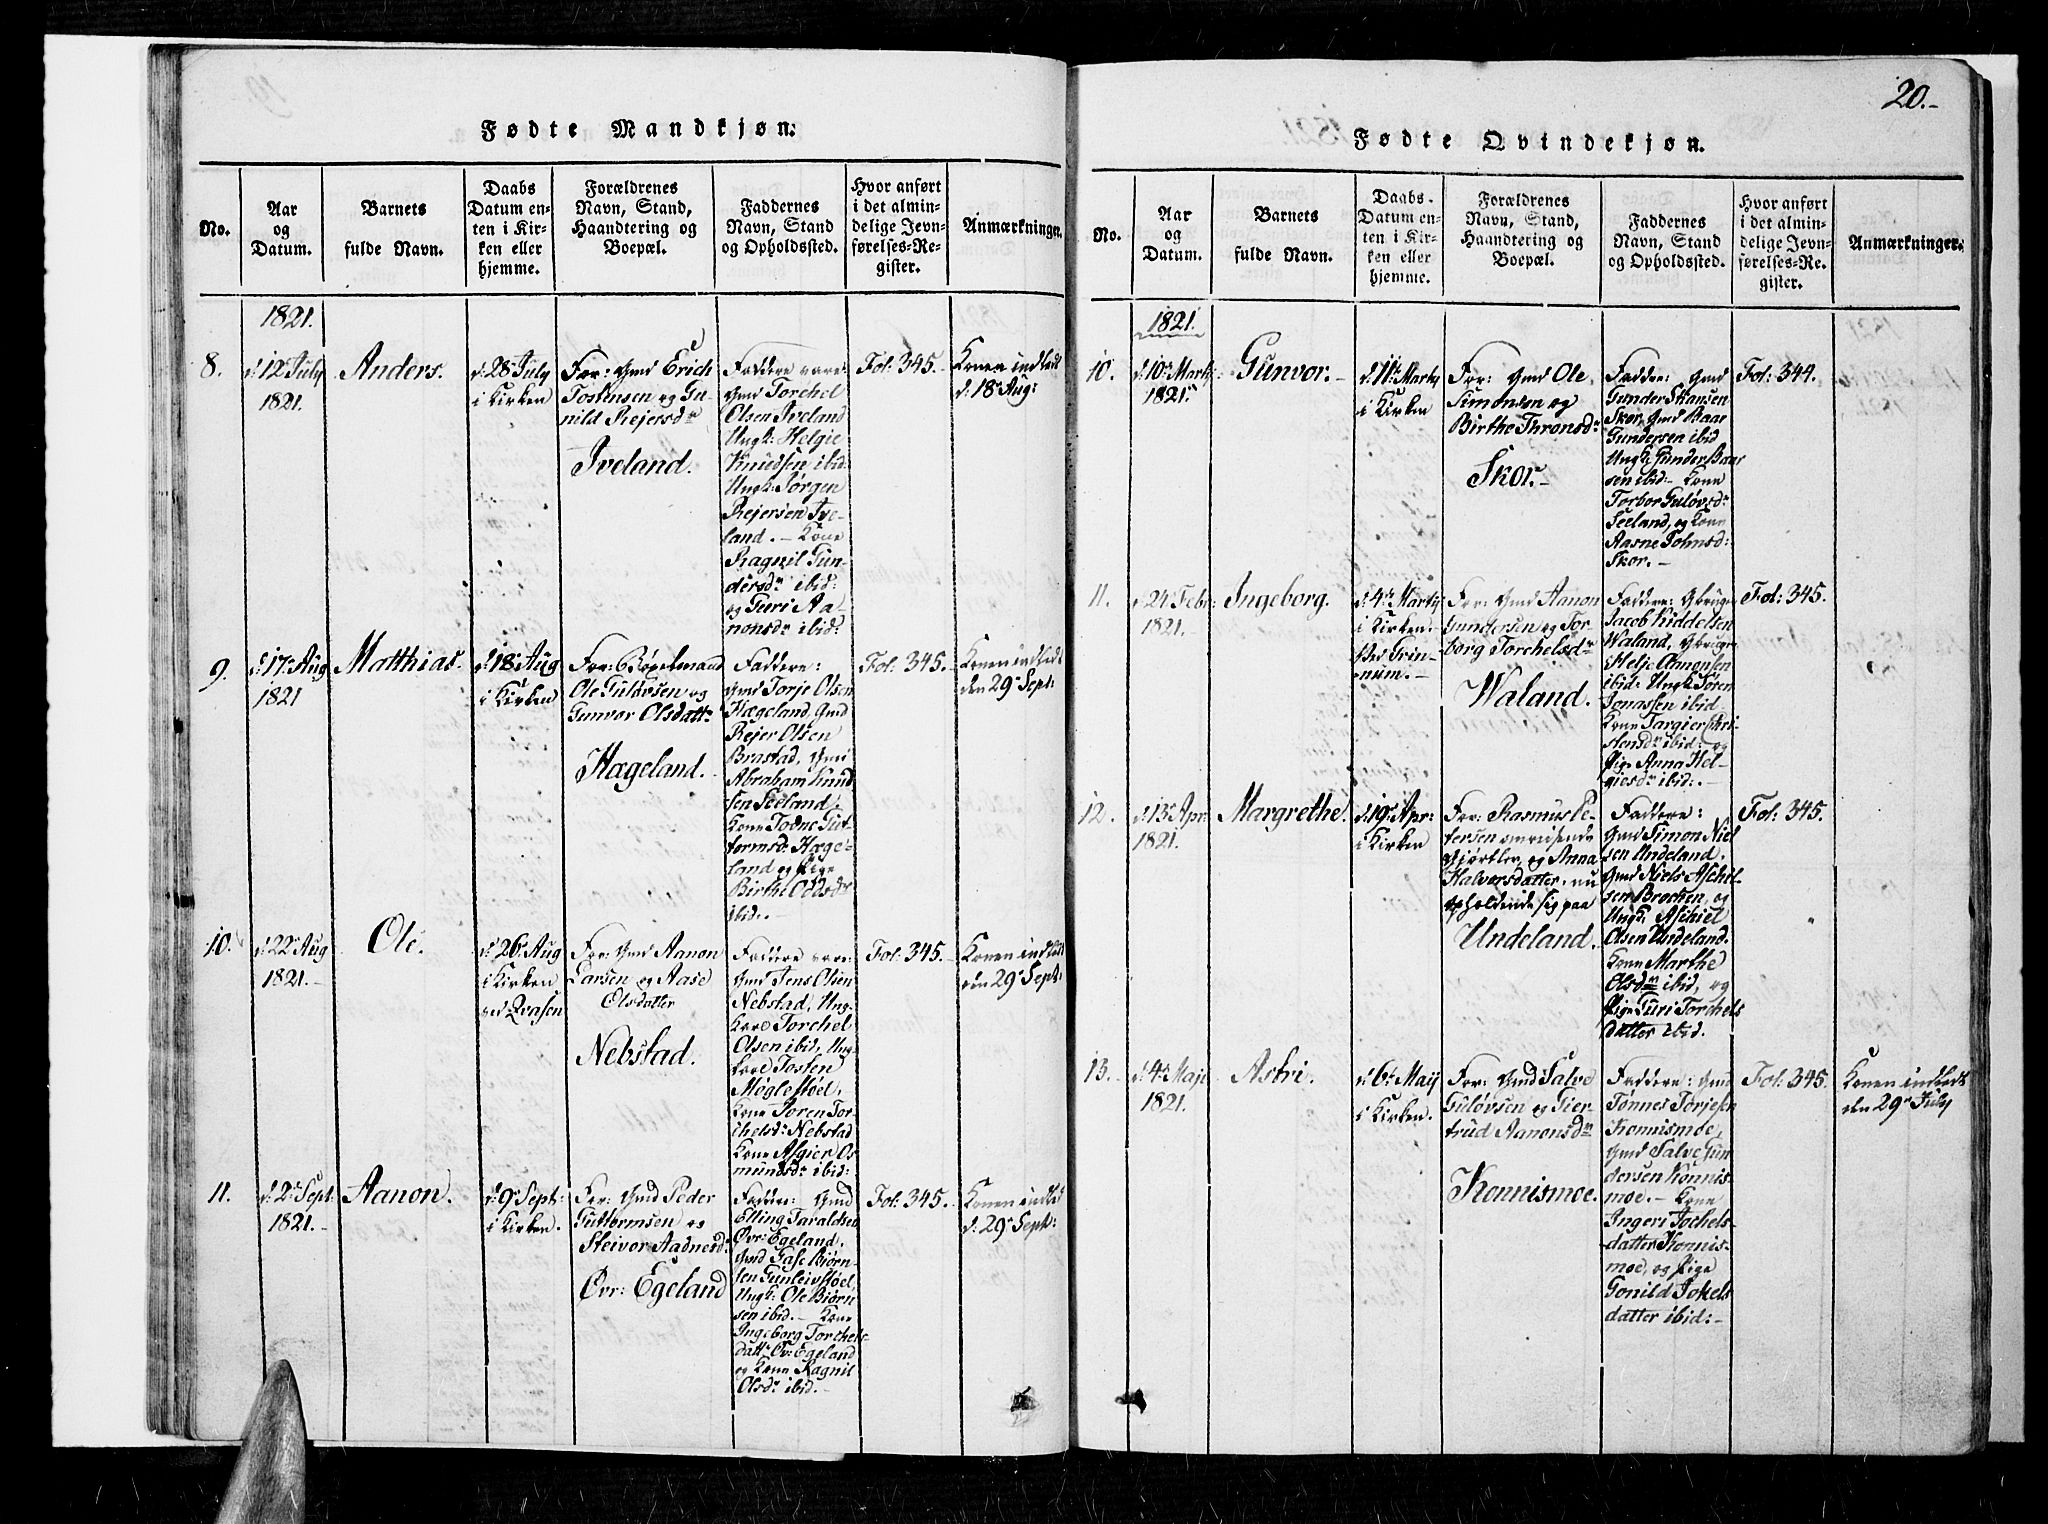 Fødte Mandkjøn.
No.
Aar
og
Datum.
Barnets
fulde Navn.
Daabs
Datum en-
ten i Kir-
ken eller
hjemme.
Forældrenes
Navn, Stand,
Haandtering og
Boepæl.
Faddernes
Navn, Stand
og Opholdssted.
Hvor anført
i det almin-
delige Jevn-
førelses-Re-
gister.
Anmærkninger.
1821.
8.
d: 12 July
1821.
Anders.
d: 28 July
i Kirken
For: Gmd Erich
Tostensen og Gu-
nild Rejersdr
Iveland.
Faddere vare:
Gmd Torchel
Olsen Iveland
Ungk: Helgie
Knudsen ibid:
Ungk: Jørgen
Rejersen Ive-
land. – Kone
Ragnil Gun-
dersdr ibid:
og Guri Aa-
nonsdr ibid:
Fol: 345.
Konen indledt
d: 18 Aug:
9.
d: 17 Aug
1821
Matthias.
d: 18 Aug
i Kirken
For: Bøgelmand
Ole Guløvsen og
Gunvor Olsdattr
Hægeland.
Faddere:
Gmd Torje Olsen
Hægeland, Gmd
Rejer Olsen
Brastad, Gmd
Abraham Knud
sen Seeland,
Kone Todne Gut-
tormsd: Hæge-
land og Pige
Birthe Oddsdr
ibid. –
Fol: 345.
Konen indledt
den 29 Sept:
10.
d: 22 Aug
1821. –
Ole.
d: 26 Aug
i Kirken
ved Qvasen
For: Gmd Aanon
Larsen og Aase
Olsdatter
Nebstad.
Faddere vare:
Gmd Jens Olsen
Nebstad, Ung-
kare Torchel
Olsen ibid, Ung-
kare Tosten
Møglestøel,
Kone Joren Tor-
chelsdr Nebstad
Kone Asgier Os
mundsdr ibid:
Fol: 345.
Konen indledt
den 29 Sept:
11.
d: 2 Sept:
1821. –
Aanon.
d: 9 Sept:
i Kirken.
For: Gmd Peder
Guttormsen og
Steivor Aadnesd:
Øvr: Egeland
Faddere: Gmd
Elling Taraldsen
Øvr: Egeland,
Gmd Fase Biørn-
sen Gunleivstøel,
Ungk: Ole Biørn
sen ibid. – Kone
Ingeborg Torchels-
dattr Øv: Egeland
og Kone Ragnil
Olsdr ibid. –
Fol: 345.
Konen indled
d: 29 Sept:
20.-
Fødte Qvindekjøn.
No.
Aar
og
Datum.
Barnets
fulde Navn.
Daabs-
Datum en-
ten i Kir-
ken eller
hjemme.
Forældrenes
Navn, Stand,
Haandtering og
Boepæl.
Faddernes
Navn, Stand
og Opholdssted.
Hvor anført
i det almin-
delige Jevn-
førelses-Re-
gister.
Anmærkninger.
1821.
10.
d: 10 Marty
1821.
Gunvor. –
d: 11 Marty
i Kirken
For: Gmd Ole
Simonsen og
Birthe Thronsdr
Skor. –
Faddere: Gmd
Gunder Skansen
Skor, Gmd Baar
Gundersen ibid
Ungk: Gunder Baar
sen ibid: – Kone
Torbor Guløvsdr
Seeland, og Kone
Aasne Tohnsd:
Skor. –
Fol: 344.
11.
d: 24 Febr:
1821. –
Ingeborg.
d: 4 Marty
i Kirken
Ved Grin-
num. –
For: Gmd Aanon
Gundersen og Tor-
borg Torchelsdr
Waland.
Faddere: Gbruger
Jacob Kiddelsen
Waland, Gbruger
Helje Aanonsen
ibid: Ungk Søren
Jonassen ibid.
Kone Targier Chri-
stensdr ibid: og
Pige Anna Hel-
giesdr ibid: –
Fol: 345.
12.
d: 13 Apr:
1821.
Margrethe.
d: 19 Apr:
i Kirken
For: Rasmus Pe-
tersen omreisende
Gjørtler og Anna
Halvorsdatter, nu
opholdende sig paa
Undeland.
Faddere:
Gmd Simon Niel
sen Undeland,
Gmd Niels Aschil-
sen Brocken, og
Ungk: Aschiel
Olsen Undeland.
Kone Marthe
Olsdr ibid, og
Pige Guri Torchels
datter ibid.
Fol: 345.
13.
d: 4 Maji
1821.
Astri.
d: 6 Maij
i Kirken.
For: Gmd Salve
Guløvsen og Gier-
trud Aanonsdr
Konnismoe.
Faddere: Gmd
Tønnes Torjesen
Konnismoe,
Gmd Salve Gun
dersen Konnis-
moe. – Kone
Ingeri Jochels-
datter Konnis-
moe, og Pige
Gonild Jokels
datter ibid: –
Fol: 345.
Konen indledt
den 29 July